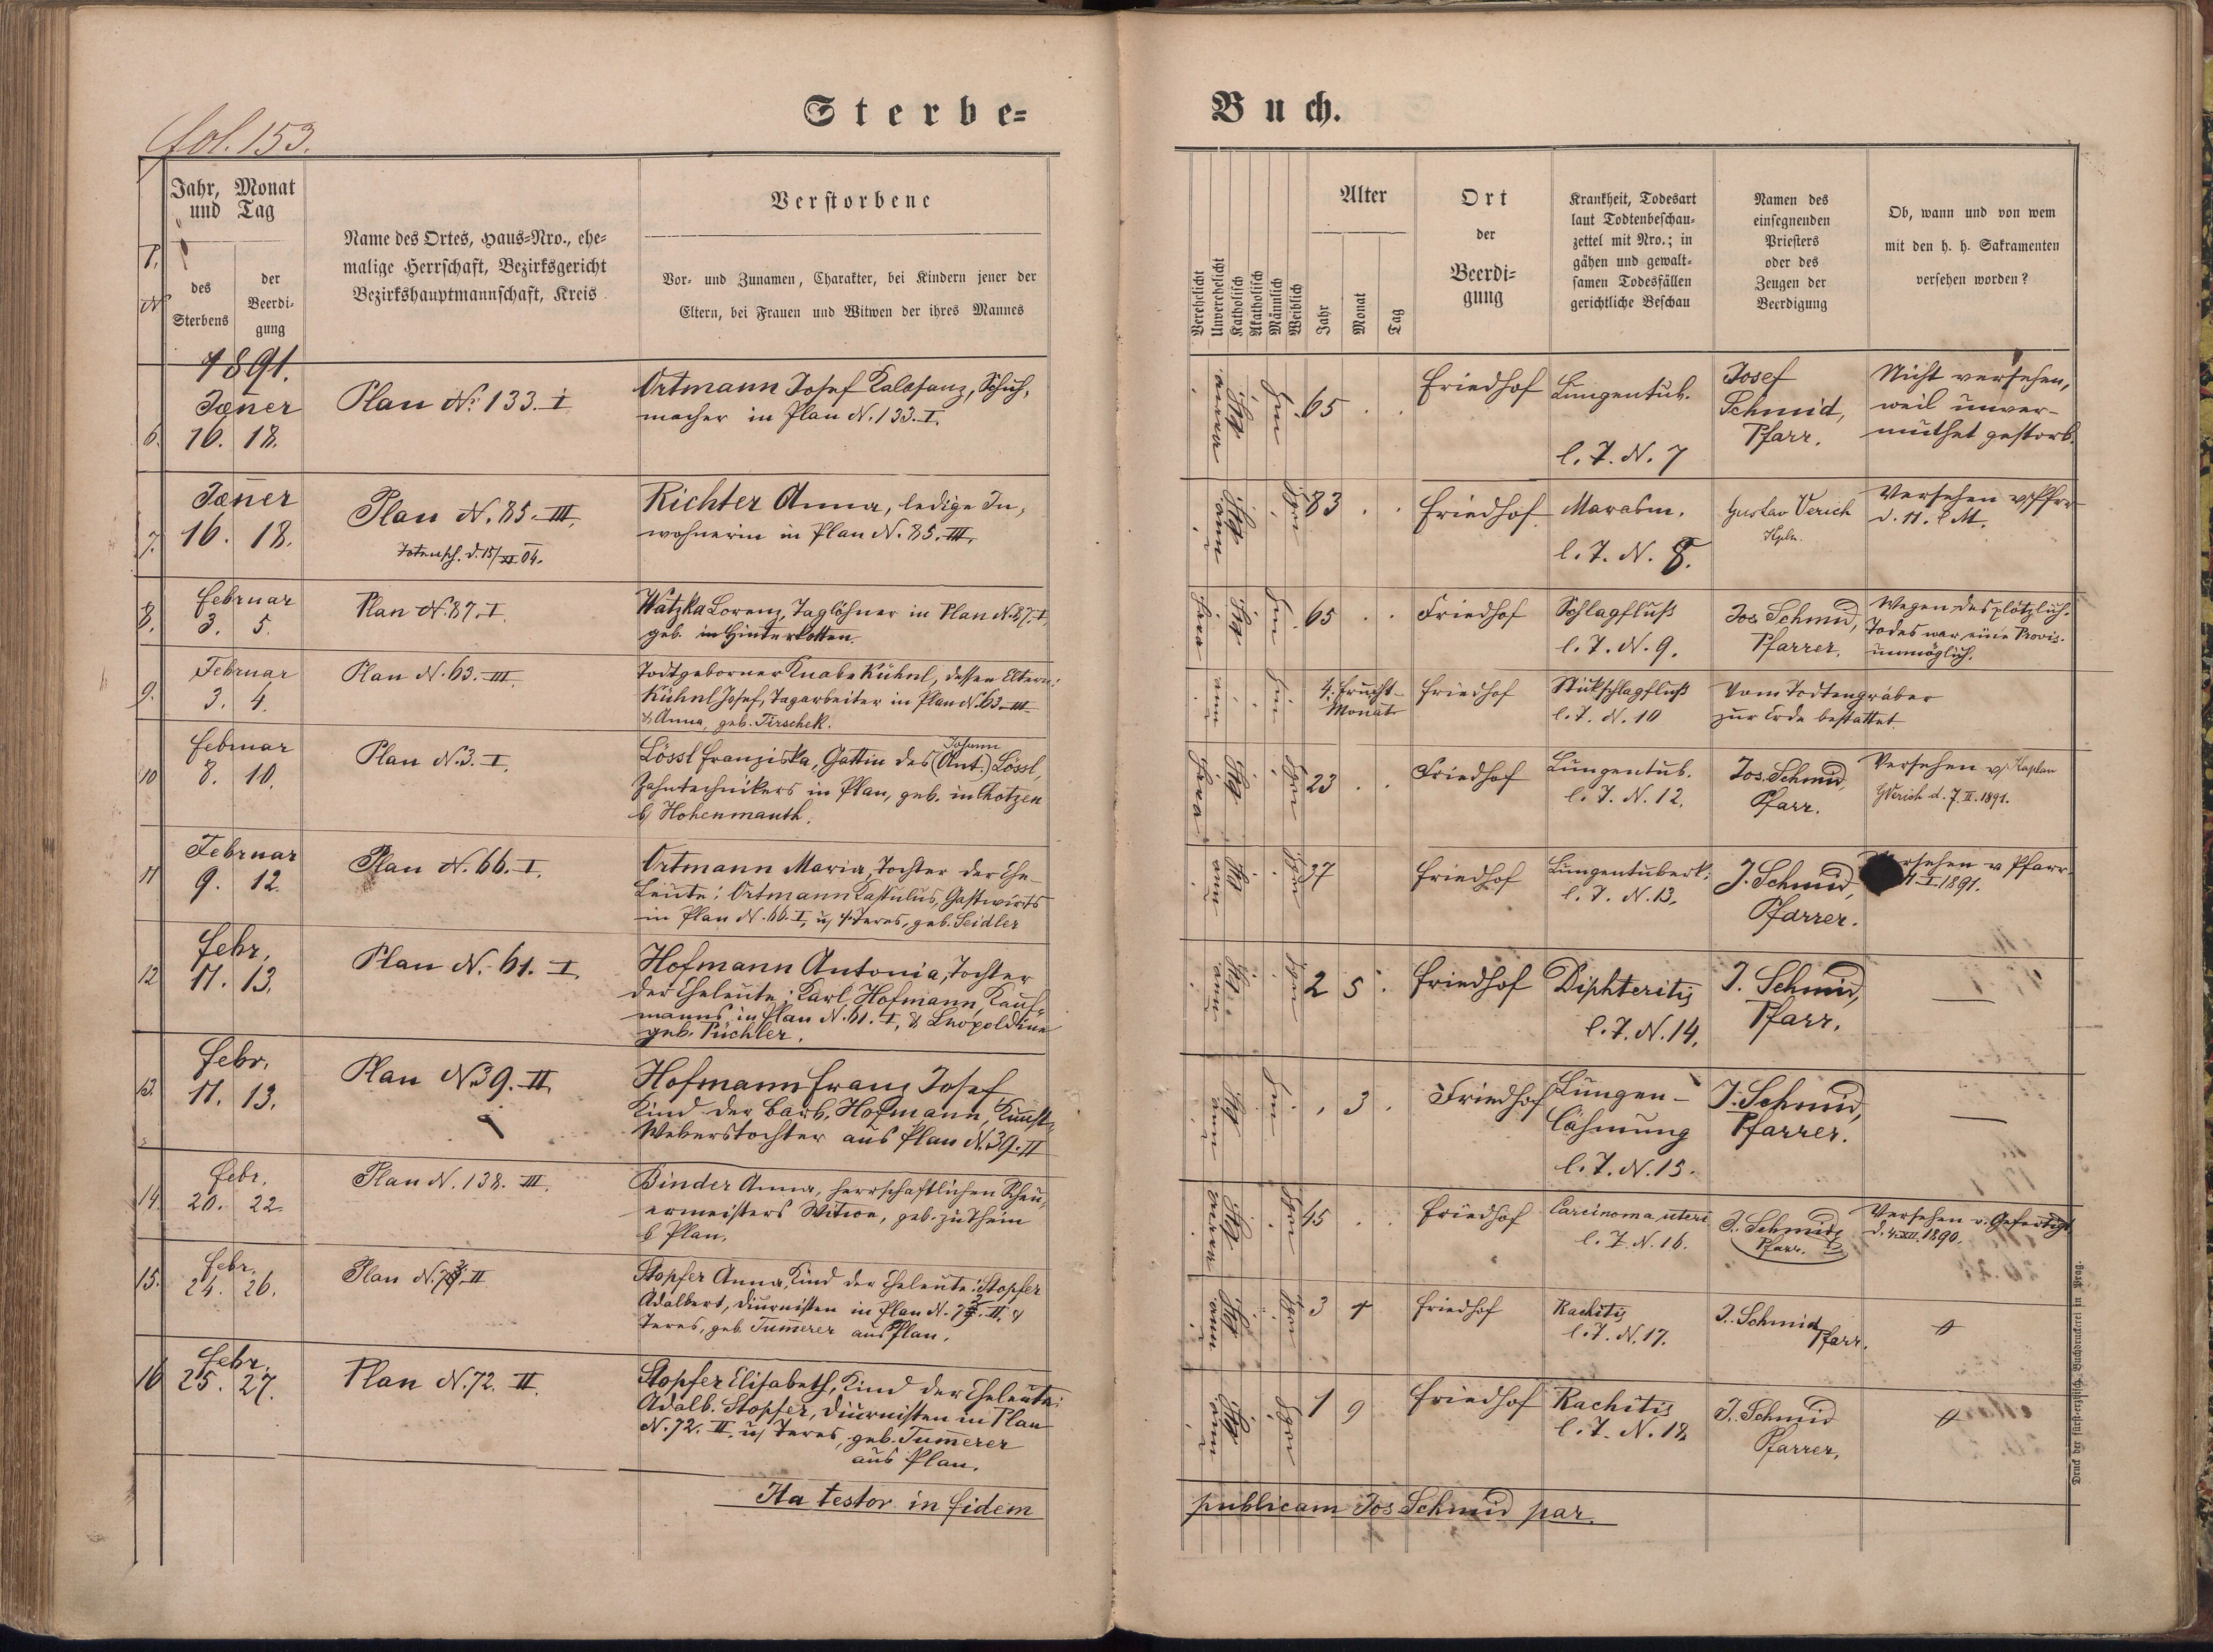 Sterbe=
Buch.
fol. 153.
Jahr, Monat
und Tag
des
Sterbens
der
Beerdi-
gung
Name des Ortes, Haus-Nro., ehe-
malige Herrschaft, Bezirksgericht
Bezirkshauptmannschaft, Kreis
Verstorbene
Vor- und Zunamen, Charakter, bei Kindern jener der
Eltern, bei Frauen und Witwen der ihres Mannes
Verehelicht
Unverehelicht
Katholisch
Akatholisch
Männlich
Weiblich
Alter
Jahr
Monat
Tag
Ort
der
Beerdi-
gung
Krankheit, Todesart
laut Todtenbeschau-
zettel mit Nro.; in
gähen und gewalt-
samen Todesfällen
gerichtliche Beschau
Namen des
einsegnenden
Priesters
oder des
Zeugen der
Beerdigung
Ob, wann und von wem
mit den h. h. Sakramenten
versehen worden?
1891.
6.
Jänner
16. 18.
Plan No. 133. I
Ortmann Josef Kalasanz, Schuh-
macher in Plan N. 133. I.
65
Friedhof
Lungentub.
l. T. N. 7
Josef
Schmid,
Pfarr.
Nicht versehen,
weil unver-
muthet gestorb.
7.
Jänner
16. 18.
Plan N. 85. III.
Totensch. d. 15/XI 04.
Richter Anna, ledige In-
wohnerin in Plan N. 85. III.
83
Friedhof
Marasm.
l. T. N. 8.
Gustav Verich
Kpln.
Versehen v/Pfr
d. 11. l. M.
8.
Februar
3. 5.
Plan N. 87. I.
Watzka Lorenz, Taglöhner in Plan N. 87. I,
geb. in Hinterkotten.
65
Friedhof
Schlagfluß
l. T. N. 9.
Jos Schmid,
Pfarrer.
Wegen des plötzlich.
Todes war eine Provis.
unmöglich.
9.
Februar
3. 4.
Plan N. 63. III.
Todtgeborner Knabe Kühnl, dessen Eltern:
Kühnl Josef, Tagarbeiter in Plan N. 63 III
& Anna, geb. Tirschek.
Frucht-
Monate
Friedhof
Stickschlagfluß
l. T. N. 10
Vom Todtengräber
zur Erde bestattet
10
Februar
8. 10.
Plan N. 3. I.
Johann
Lössl Franziska, Gattin des (Ant.) Lössl,
Zahntechnikers in Plan, geb. in Chotzen
b/ Hohenmauth.
23
Friedhof
Lungentub.
l. T. N. 12.
Jos. Schmid,
Pfarr.
Versehen v/ Kaplan
GVerich d. 7. II. 1891.
11
Februar
9. 12.
Plan N. 66. I.
Ortmann Maria, Tochter der Ehe-
leute: Ortmann Kastulus, Gastwirts
in Plan N. 66. I, u/ Teres, geb. Seidler
37
Friedhof
Lungentuberk.
l. T. N. 13.
J. Schmid,
Pfarrer.
rsehen v Pfarr.
I. 1891.
12
Febr.
11. 13.
Plan N. 61. I.
Hofmann Antonia, Tochter
der Eheleute: Karl Hofmann, Kauf-
manns in Plan N. 61. I, & Leopoldine
geb. Püchler.
2 5
Friedhof
Diphteritis
l. T. N. 14.
J. Schmid,
Pfarr.
—
13.
Febr.
11. 13.
Plan N 39. II.
Hofmann Franz Josef,
Kind der Barb. Hofmann, Kunst-
weberstochter aus Plan N. 39. II
3
Friedhof
Lungen-
lähmung
l. T. N. 15.
J. Schmid,
Pfarrer.
—
14.
Febr.
20. 22.
Plan N. 138. III.
Binder Anna, herrschaftlichen Scheu-
ermeisters Witwe, geb. zu Thein
b Plan.
45
Friedhof
Carcinoma uteri
l. T. N. 16.
J. Schmid,
Pfarr.
Versehen v. Gefertigt
d. 4. XII. 1890.
15.
Febr.
24. 26.
Plan N. 72. II
Stopfer Anna, Kind der Eheleute: Stopfer
Adalbert, Diurnisten in Plan N. 72. II. &
Teres, geb. Tummerer aus Plan.
3
Friedhof
Rachitis
l. T. N. 17.
J. Schmid
Pfarr.
16
Febr.
25. 27.
Plan N. 72. II.
Stopfer Elisabeth, Kind der Eheleute:
Adalb. Stopfer, Diurnisten in Plan
N. 72. II. u/ Teres, geb. Tummerer
aus Plan.
1 9
Friedhof
Rachitis
l. T. N. 18
J. Schmid
Pfarrer.
Ita testor in fidem
publicam Jos Schmid par.
Druck der fürst-erzbisch. Buchdruckerei in Prag.